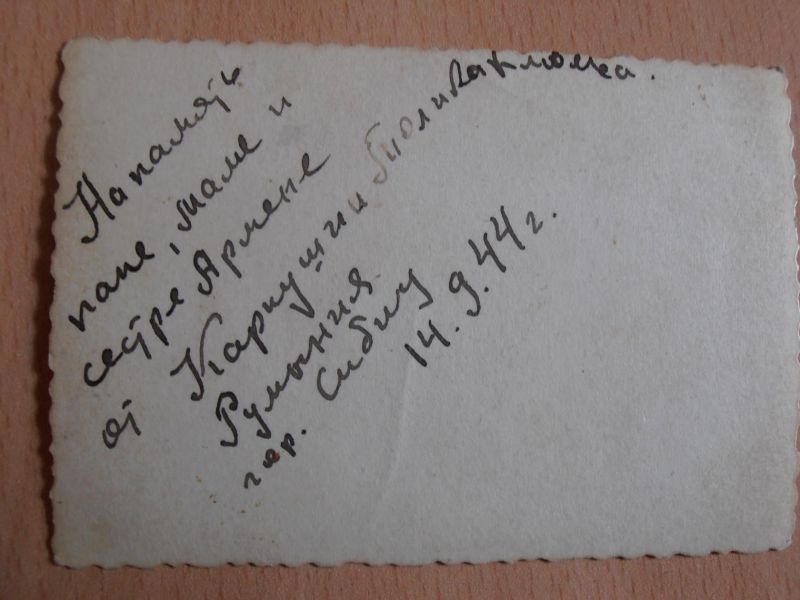 На память
папе, маме и
сестре Армене
от Карпуши и
Румыния
гор. Сибиу
14.9.44 г.